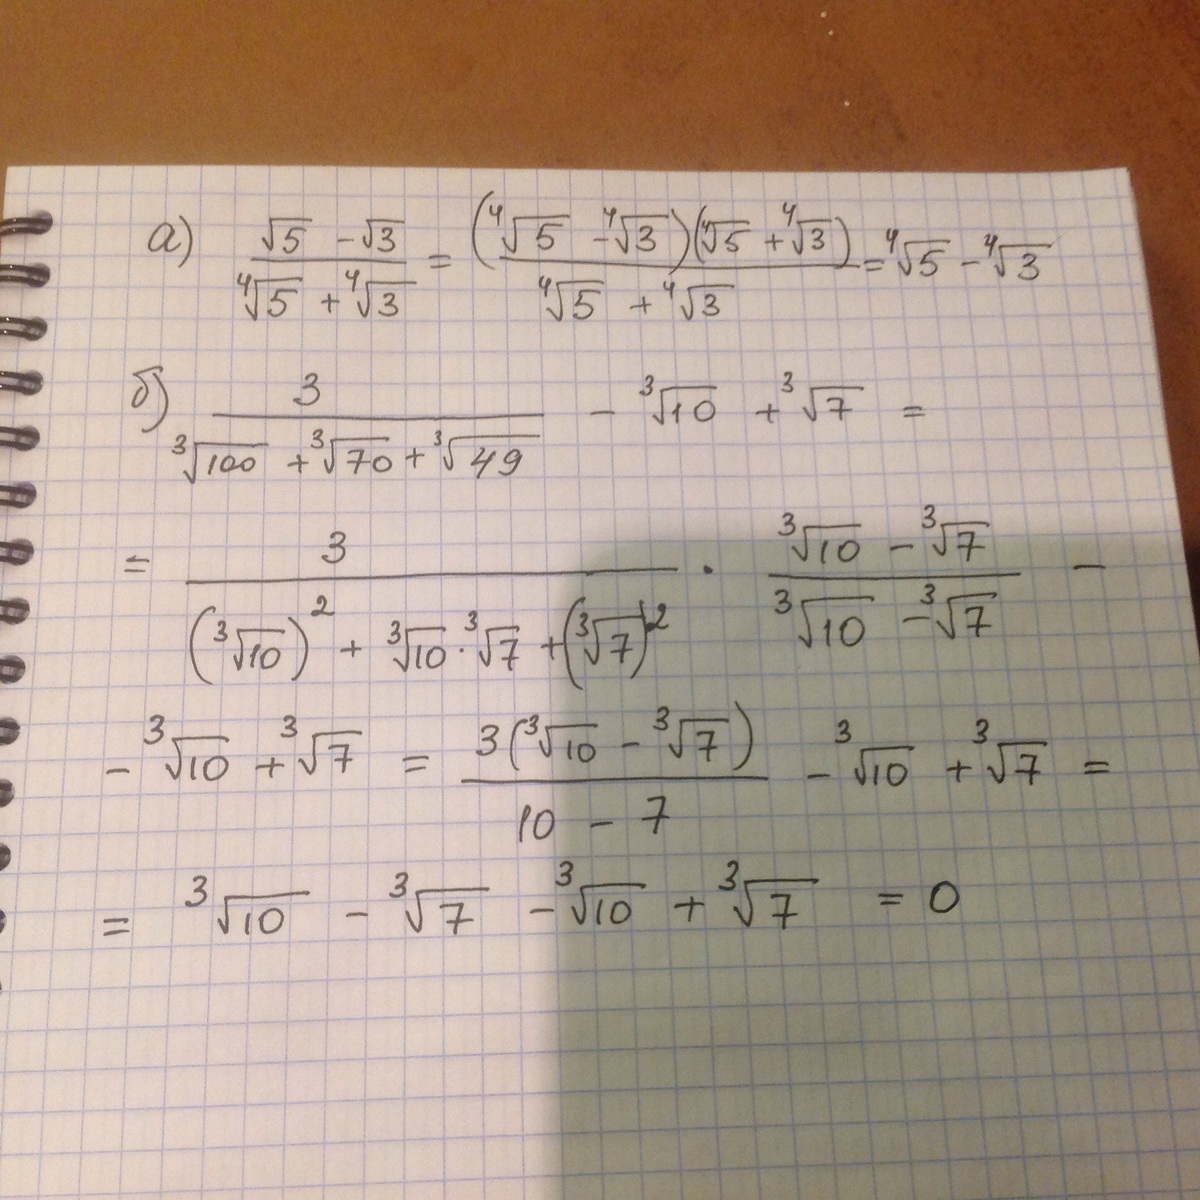 а) (√5 - √3)/(⁴√5 + ⁴√3) = ((⁴√5 - ⁴√3)(⁴√5 + ⁴√3))/(⁴√5 + ⁴√3) = ⁴√5 - ⁴√3
б) 3/(³√100 + ³√70 + ³√49) - ³√10 + ³√7 =
= 3/((³√10)² + ³√10 · ³√7 + (³√7)²) · (³√10 - ³√7)/(³√10 - ³√7) -
- ³√10 + ³√7 = 3(³√10 - ³√7)/(10 - 7) - ³√10 + ³√7 =
= ³√10 - ³√7 - ³√10 + ³√7 = 0